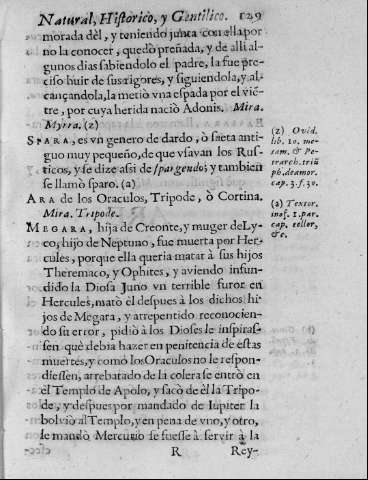 Natural, Historico, y Gentilico. 129
morada dèl, y teniendo junta con ella por
no la conocer, quedò preñada, y de alli al-
gunos dias sabiendolo el padre, la fue pre-
ciso huir de sus rigores, y siguiendola, y al-
cançandola, la metiò vna espada por el viẽ-
tre, por cuya herida naciò Adonis. Mira.
Myrra. (2)
SPARA, es vn genero de dardo, ò saeta anti-
guo muy pequeño, de que vsavan los Rus-
ticos, y se dize assi de spargendo; y tambien
se llamò sparo. (a)
ARA de los Oraculos, Tripode, ò Cortina.
Mira. Tripode.
MEGARA, hija de Creonte, y muger de Ly-
co, hijo de Neptuno, fue muerta por Her-
cules, porque ella queria matar à sus hijos
Theremaco, y Ophites, y aviendo infun-
dido la Diosa Juno vn terrible furor en
Hercules, matò èl despues à los dichos hi-
jos de Megara, y arrepentido reconocien-
do su error, pidiò à los Dioses le inspiras-
sen què debia hazer en penitencia de estas
muertes, y comò los Oraculos no le respon-
diessen, arrebatado de la colera se entrò en
el Templo de Apolo, y sacò de èl la Tripo-
de, y despues por mandado de Iupiter la
bolviò al Templo, y en pena de vno, y otro,
le mandò Mercurio se fuesse à servir à la
R Rey-
(z) Ovid.
lib. 10. me-
tam. & Pe-
trarch. triũ
ph. de amor.
cap. 3. f. 30.
(a) Textor.
inof. 1. par.
cap. tellor,
&c.